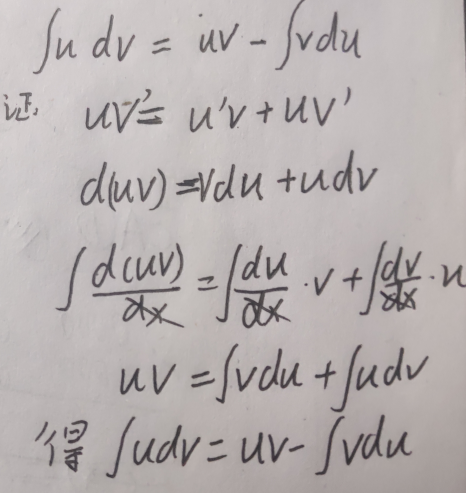 ∫u dv = uv - ∫vdu
证: uv' = u'v + uv'
d(uv) = vdu + udv
∫ d(uv)/dx = ∫ du/dx · v + ∫ dv/dx · u
uv = ∫vdu + ∫udv
得 ∫udv = uv - ∫vdu